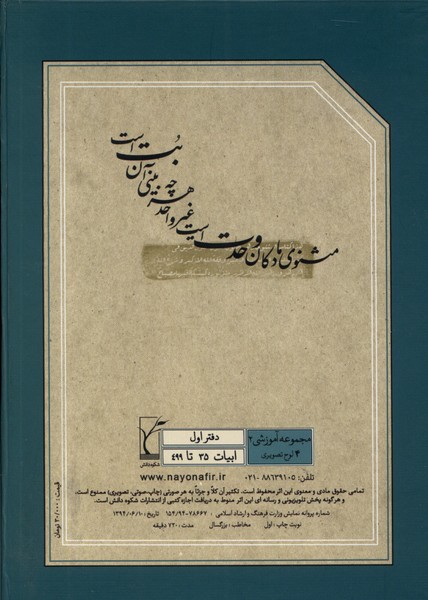 مثنوی ما دکان وحدت است
غیر واحد هر چه بینی آن بت است
مجموعه آموزشی ۲
۴ لوح تصویری
دفتر اول
ابیات ۳۵ تا ۴۹۹
شکوه دانش
تلفن: ۸۸۶۳۹۱۰۵-۰۲۱
www.nayonafir.ir
تمامی حقوق مادی و معنوی این اثر محفوظ است. تکثیر آن کلاً و جزئاً به هر صورتی (چاپ، صوتی، تصویری) ممنوع است.
و هرگونه پخش تلویزیونی و رسانه ای این اثر منوط به دریافت اجازه کتبی از انتشارات شکوه دانش است.
شماره پروانه نمایش وزارت فرهنگ و ارشاد اسلامی: ۱۵۴/۹۴-۷۸۶۶۷ تاریخ: ۱۳۹۴/۰۶/۱۰
نوبت چاپ: اول مخاطب: بزرگسال مدت: ۷۲۰ دقیقه
قیمت: ۳۰/۰۰۰ تومان